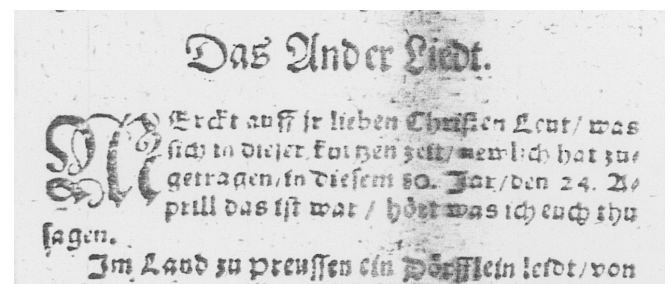 Das Ander Liedt.
MErckt auff jr lieben Christen Leut/ was
sich in dieser kurtzen zeit/ newlich hat zu⸗
getragen/ in diesem 80. Jar/ den 24. A⸗
prill das ist war / hört was ich euch thu
sagen.
Im Land zu Preussen ein Dörfflein leidt/ von